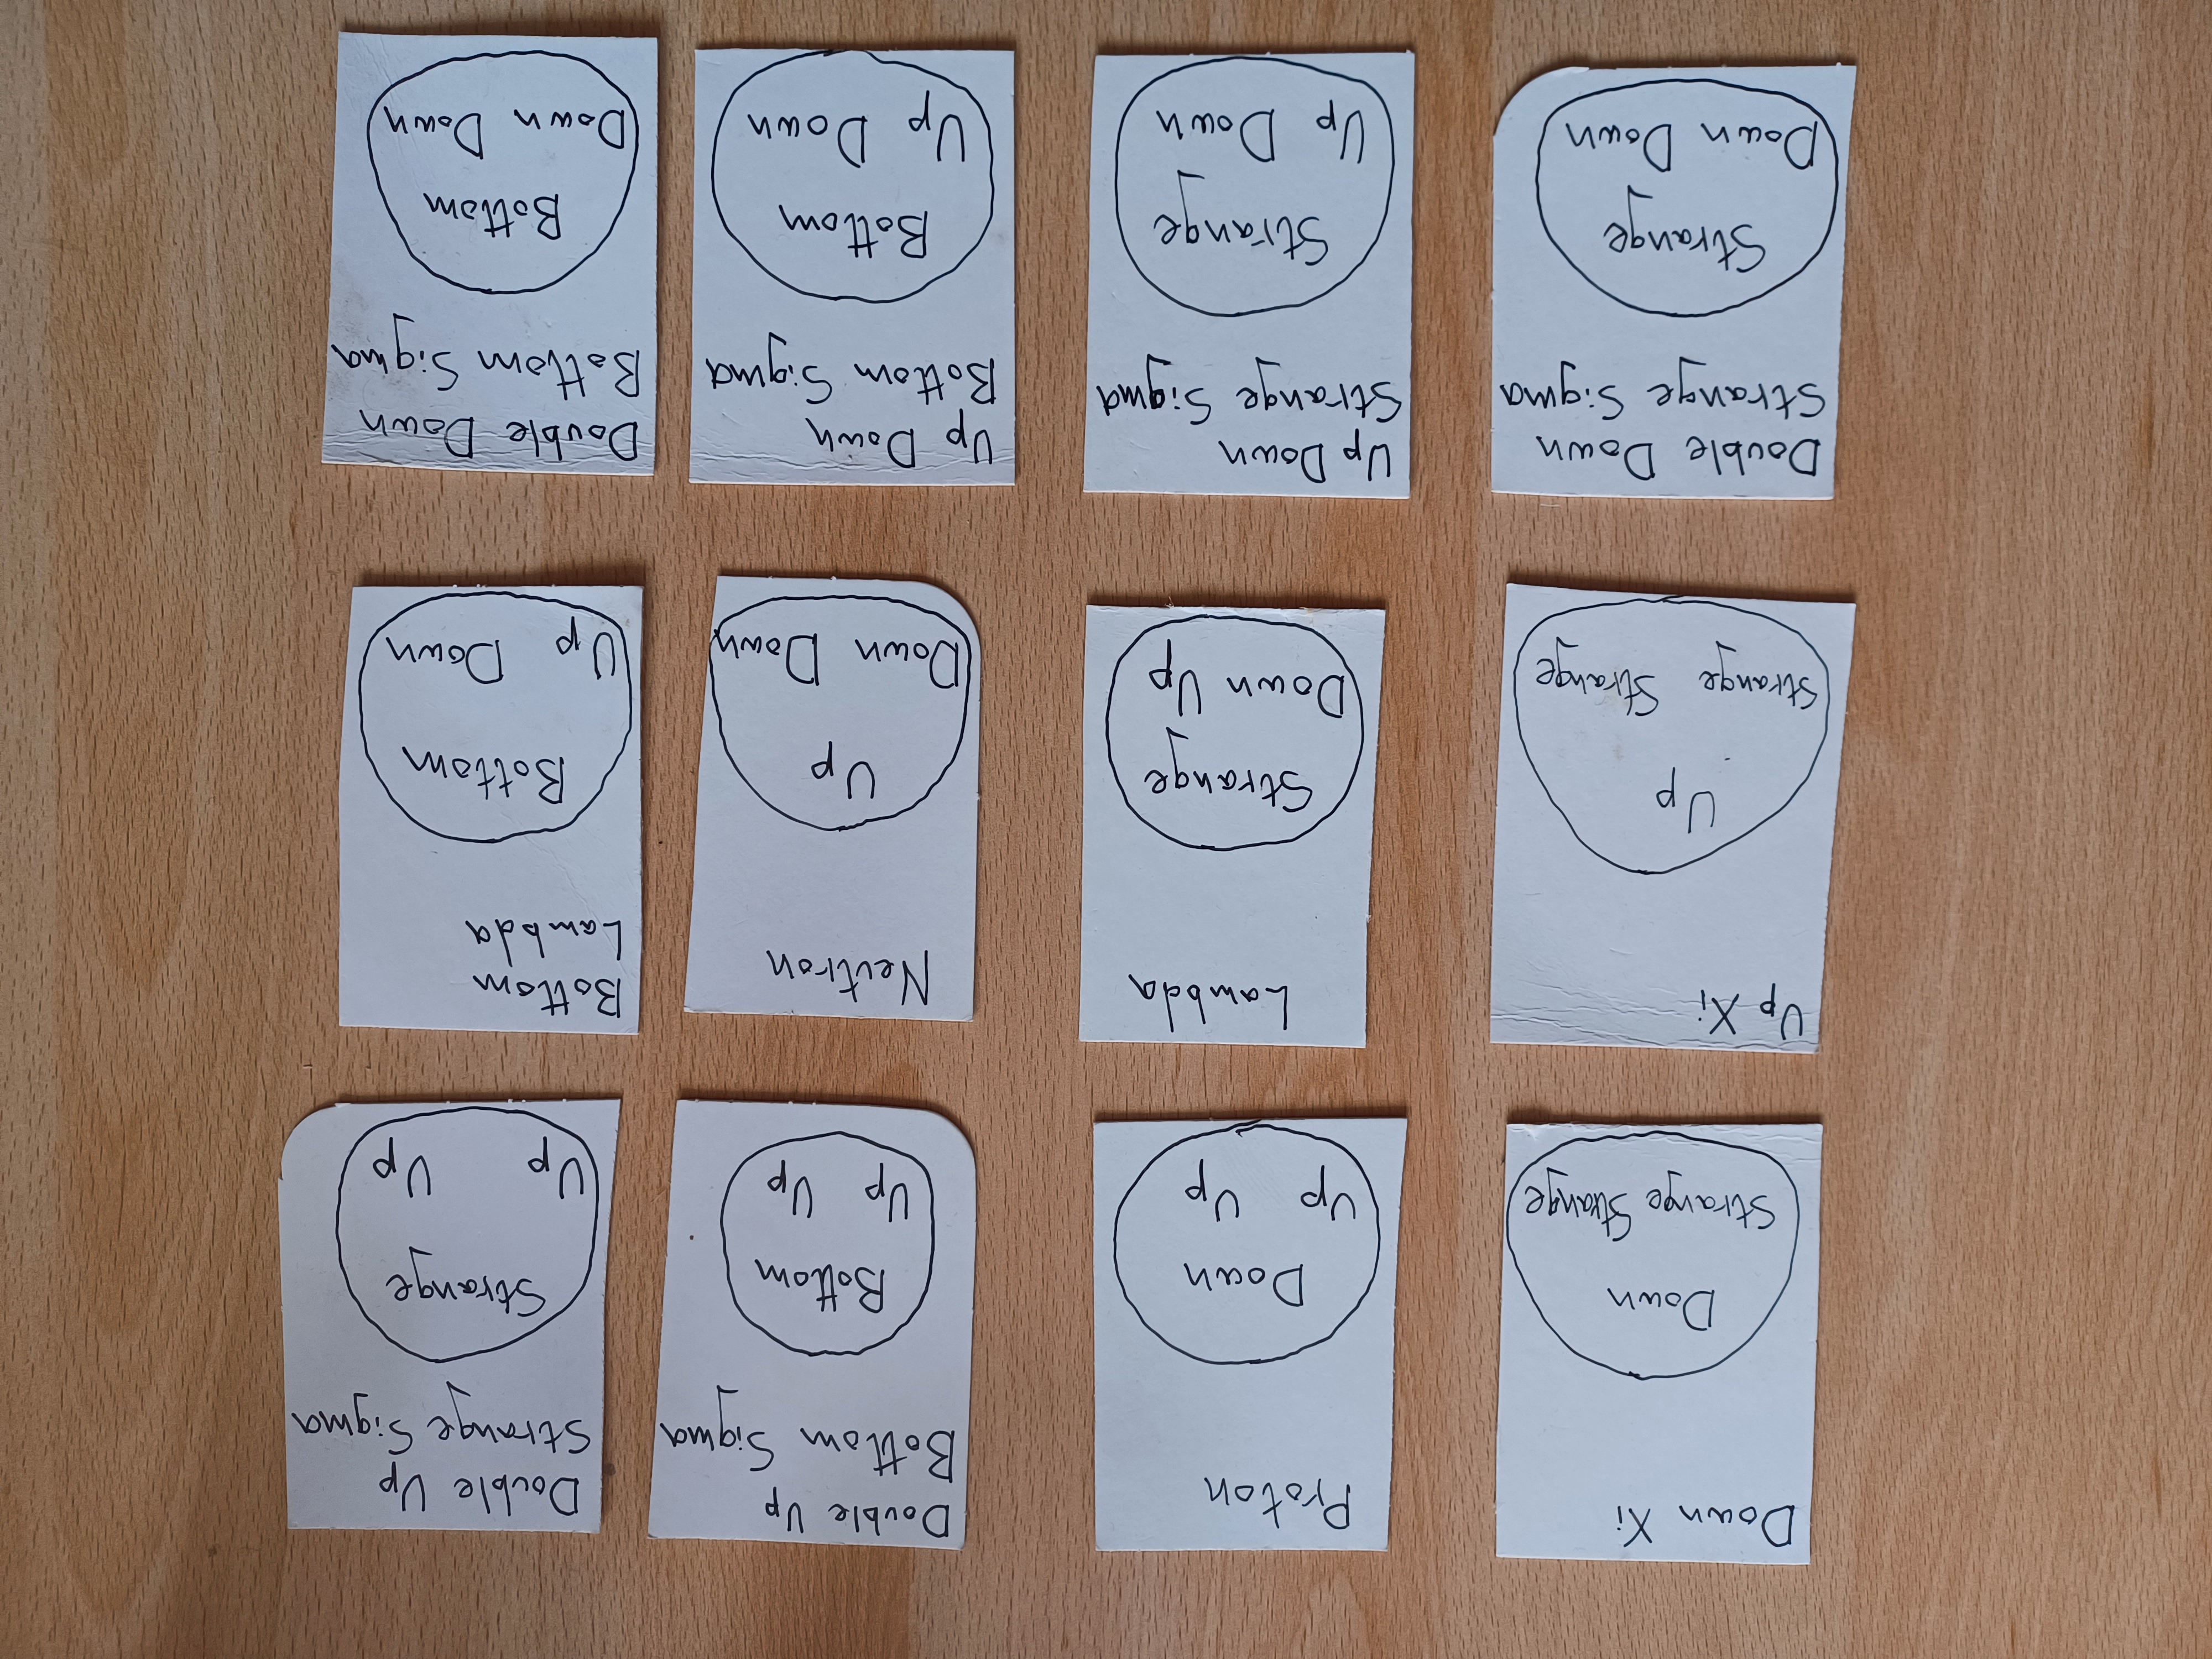 Down Xi
Down
Strange Strange
Proton
Down
Up Up
Double Up
Bottom Sigma
Bottom
Up Up
Double Up
Strange Sigma
Strange
Up Up
Up Xi
Up
Strange Strange
Lambda
Strange
Down Up
Neutron
Up
Down Down
Bottom
Lambda
Bottom
Up Down
Double Down
Strange Sigma
Strange
Down Down
Up Down
Strange Sigma
Strange
Up Down
Up Down
Bottom Sigma
Bottom
Up Down
Double Down
Bottom Sigma
Bottom
Down Down